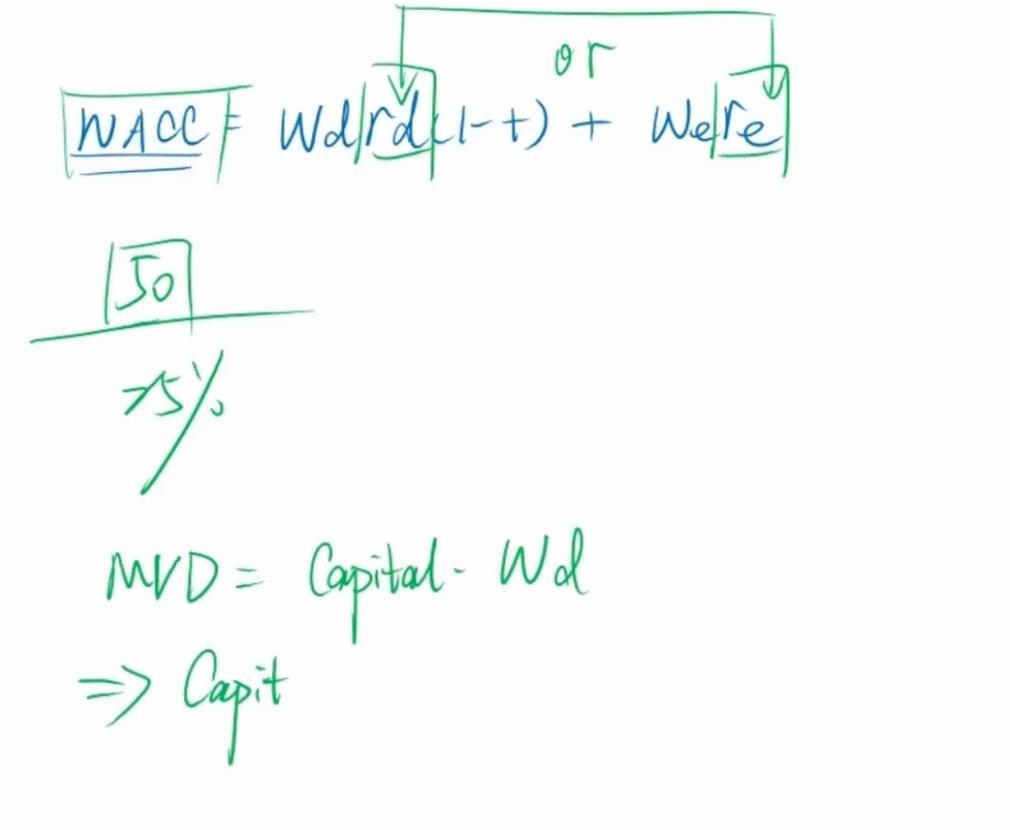 or
WACC = Wd rd (1-t) + We re
50
75%
MVD = Capital · Wd
=> Capit